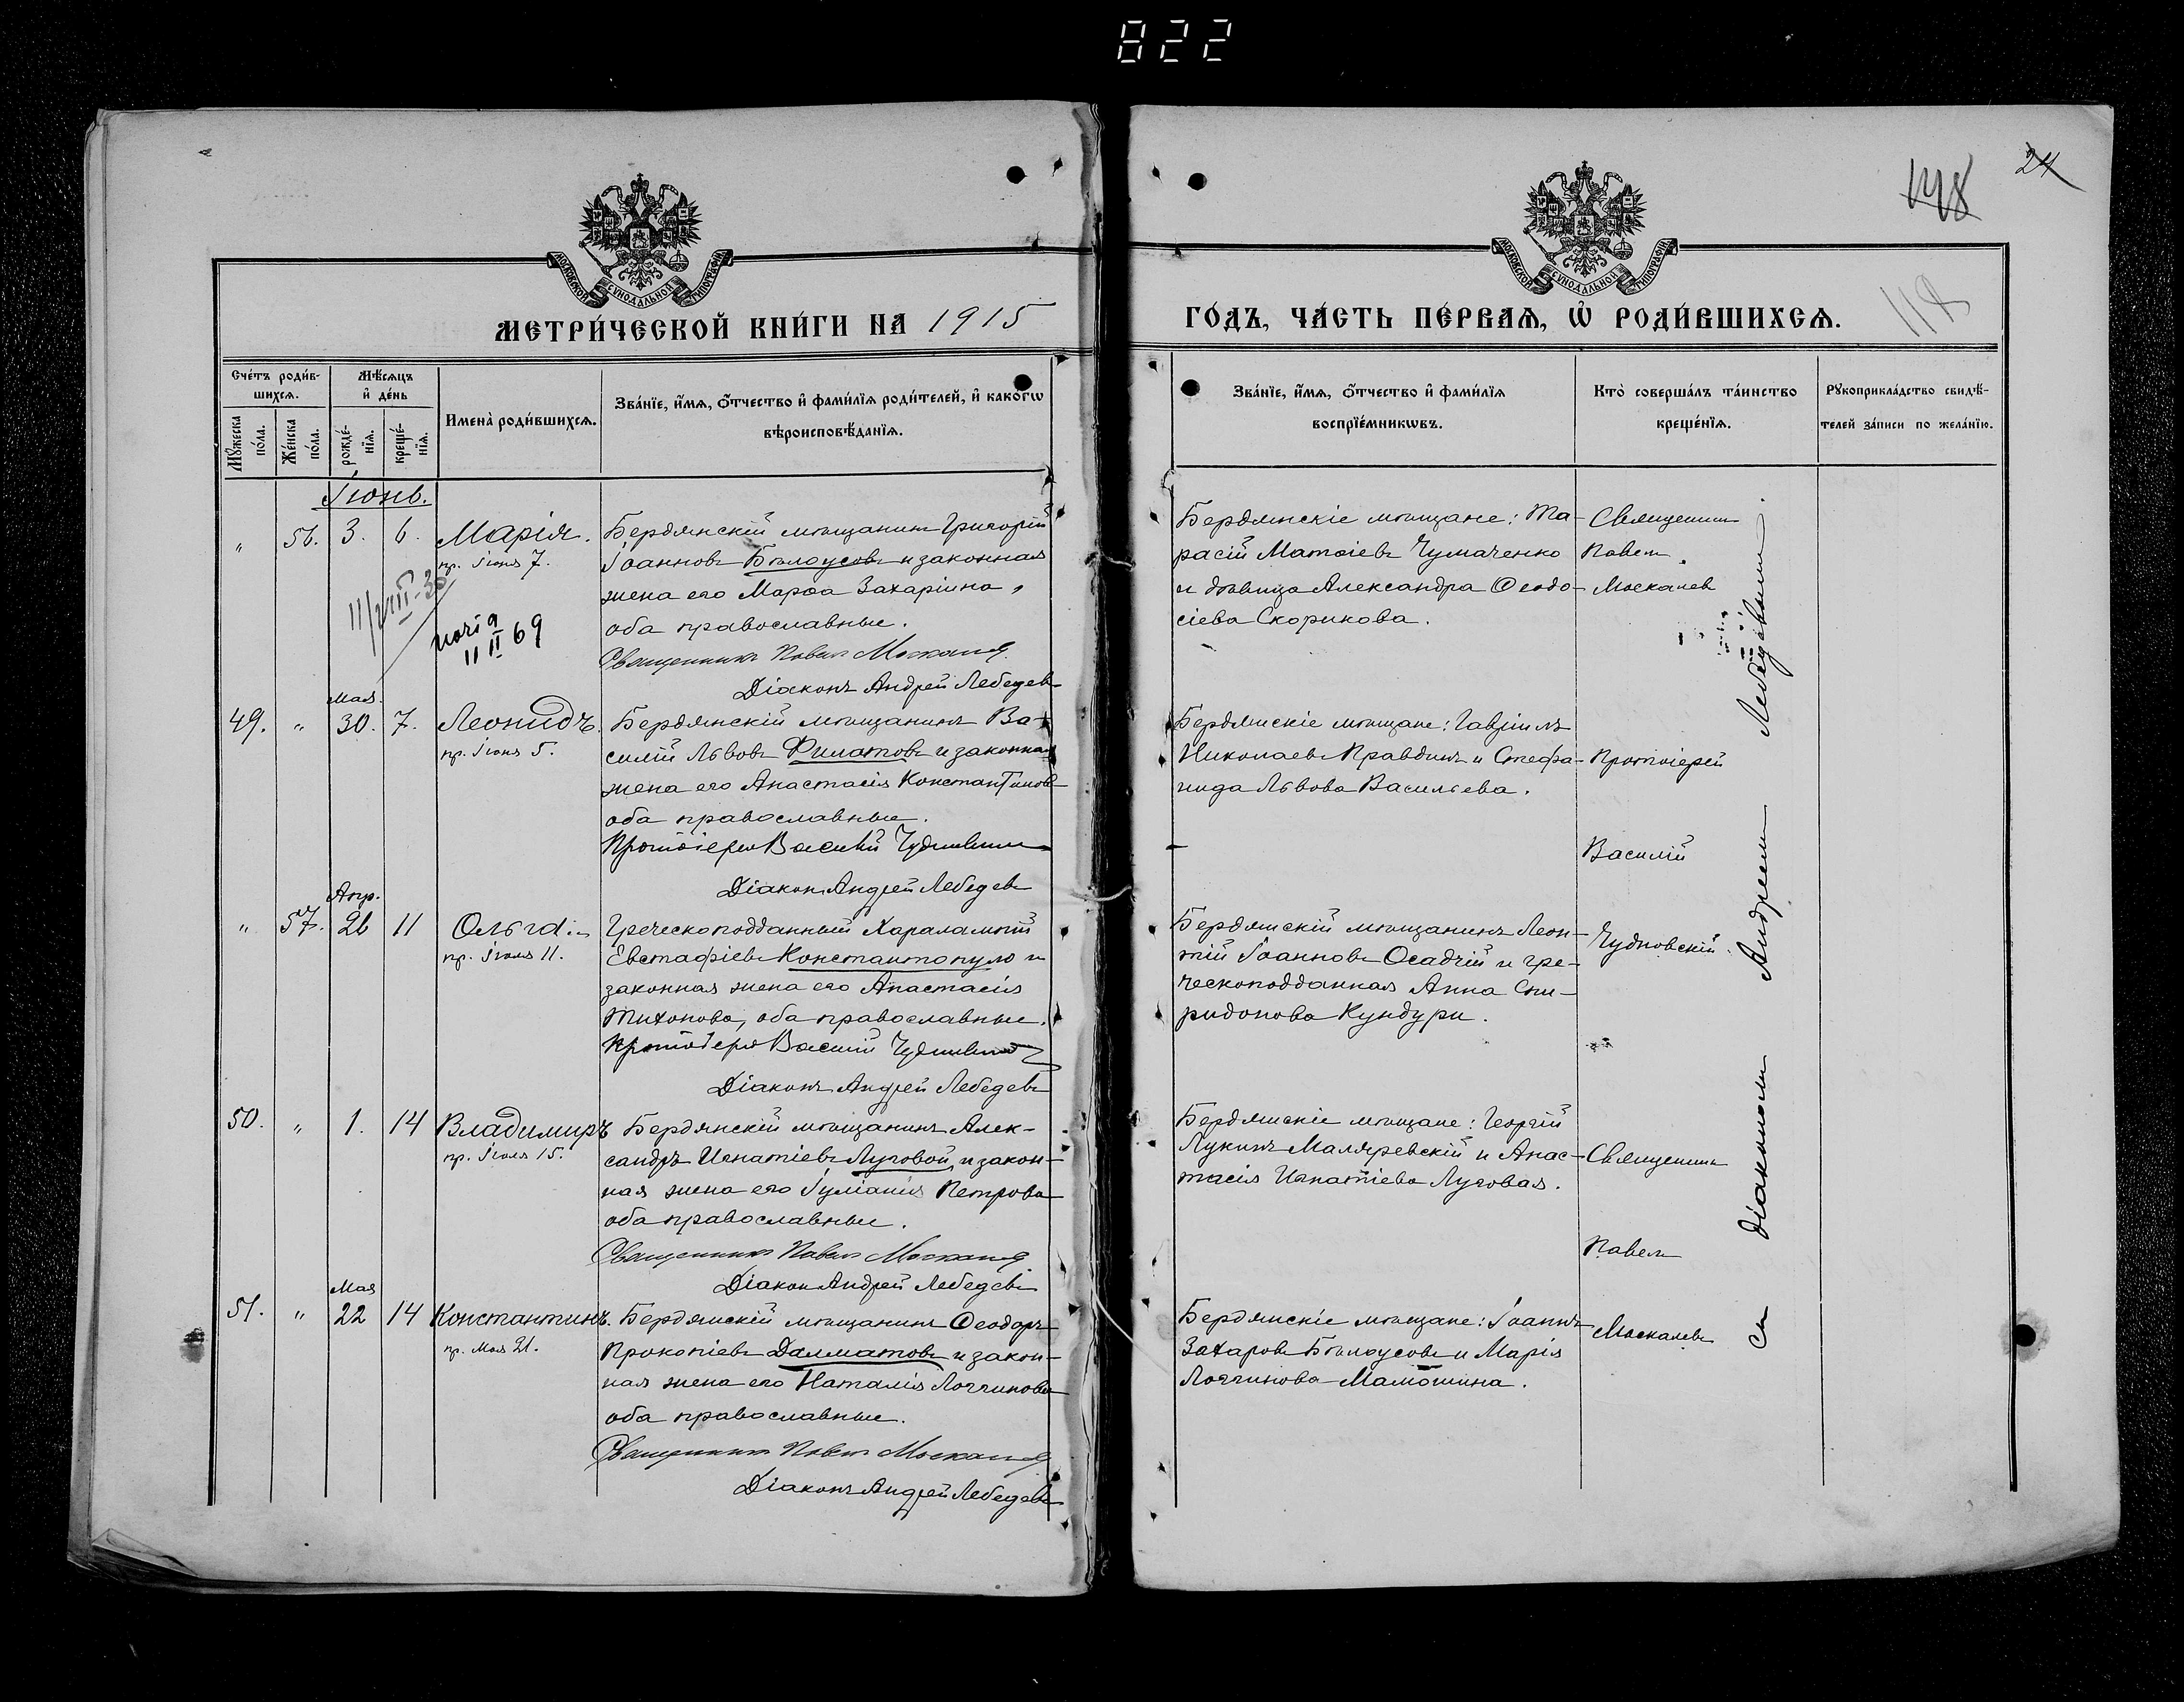 822
24
148
118
МОСКОВСКОЙ СѴНОДАЛЬНОЙ ТИПОГРАФІИ
МОСКОВСКОЙ СѴНОДАЛЬНОЙ ТИПОГРАФІИ
МЕТРИ́ЧЕСКОЙ КНИ́ГИ НА 1915
ГО́ДЪ, ЧА́СТЬ ПЕ́РВАѦ, Ѡ҆ РОДИ́ВШИХСѦ.
Сче́тъ роди́в-
шихсѧ.
Мꙋ́жеска
по́ла.
Же́нска
по́ла.
Мѣ́сѧцъ
и҆ де́нь
рожде́-
нїѧ.
креще́-
нїѧ.
Имена̀ роди́вшихсѧ.
Зва́нїе, и҆́мѧ, ѻ҆́тчество и҆ фами́лїѧ роди́телей, и҆ како́гѡ
вѣроисповѣ́данїѧ.
Зва́нїе, и҆́мѧ, ѻ҆́тчество и҆ фами́лїѧ
воспрїе́мникѡвъ.
Кто̀ соверша́лъ та́инство
креще́нїѧ.
Рꙋкоприкла́дство свидѣ́-
телей за́писи по жела́нїю.
Іюнь.
„ 56. 3. 6. Марія.
пр. Іюня 7.
11/VIII-30
Марія
11 II 69
Бердянскій мѣщанинъ Григорій
Іоанновъ Бѣлоусовъ и законная
жена его Марѳа Захаріина,
оба православные.
Священникъ Павелъ Москалевъ
Діаконъ Андрей Лебедевъ
Бердянскіе мѣщане: Та-
расій Матѳіевъ Чумаченко
и дѣвица Александра Ѳеодо-
сіева Скорикова.
Священникъ
Павелъ
Москалевъ
Мая
49. „ 30. 7. Леонидъ.
пр. Іюня 5.
Бердянскій мѣщанинъ Ва-
силій Львовъ Филатовъ и законная
жена его Анастасія Константинова
оба православные.
Протоіерей Василій Чудновскій
Діаконъ Андрей Лебедевъ
Бердянскіе мѣщане: Гавріилъ
Николаевъ Правдинъ и Стефа-
нида Львова Васильева.
Протоіерей
Василій
Чудновскій.
Апр.
„ 57. 26 11 Ольга
пр. Іюля 11.
Греческоподданный Харалампій
Евстафіевъ Константопуло и
законная жена его Анастасія
Тихонова, оба православные.
Протоіерей Василій Чудновскій
Діаконъ Андрей Лебедевъ
Бердянскій мѣщанинъ Леон-
тій Іоанновъ Осадчій и гре-
ческоподданная Анна Спи-
ридонова Кундури.
50. „ 1. 14 Владимиръ
пр. Іюля 15.
Бердянскій мѣщанинъ Алек-
сандръ Игнатіевъ Луговой, и закон-
ная жена его Іуліанія Петрова
оба православные.
Священникъ Павелъ Москалевъ
Діаконъ Андрей Лебедевъ
Бердянскіе мѣщане: Георгій
Лукинъ Маляревскій и Анас-
тасія Игнатіева Луговая.
Священникъ
Павелъ
Москалевъ
Мая
51. „ 22 14 Константинъ.
пр. Мая 21.
Бердянскій мѣщанинъ Ѳеодоръ
Прокопіевъ Далматовъ и закон-
ная жена его Наталія Логгинова
оба православные.
Священникъ Павелъ Москалевъ
Діаконъ Андрей Лебедевъ
Бердянскіе мѣщане: Іоаннъ
Захаровъ Бѣлоусовъ и Марія
Логгинова Мамошина.
съ Діакономъ Андреемъ Лебедевымъ.